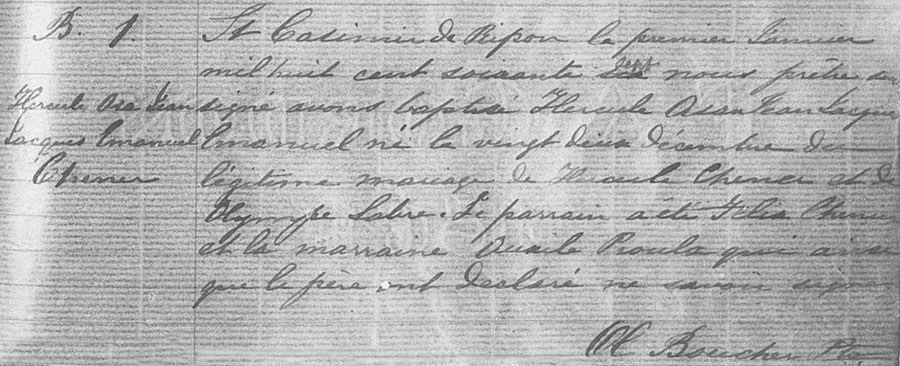 B. 1.
Hercule Asa Jean
Jacques Emanuel
Chener
St Casimir de Ripon le premier Janvier
mil huit cent soixante sept nous prêtre sous
signé avons baptisé Hercule Asa Jean Jacques
Emanuel né le vingt deux décembre du
légitime mariage de Hercule Chener et de
Olympe Labre. Le parrain a été Félix Chener
et la marraine Proulx qui ainsi
que le père ont déclaré ne savoir signer
Boucher Ptre